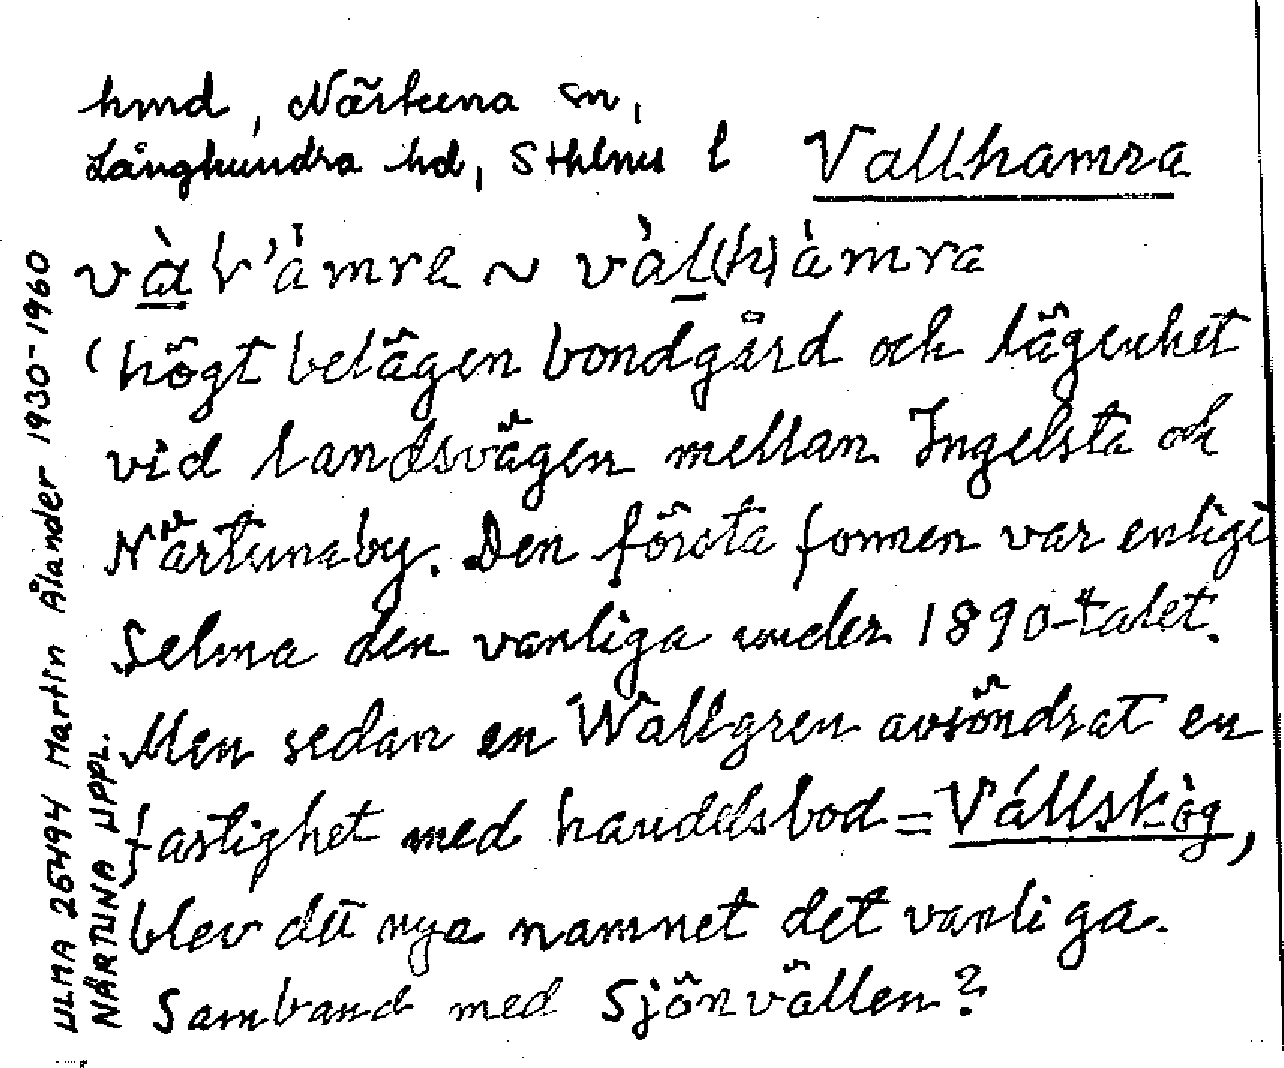 hmd, Närtuna sn,
Långhundra hd, Sthlms l Vallhamra
~ vàl(h)àmra
(högt belägen bondgård och lägenhet
vid landsvägen mellan Ingelsta och
Närtunaby. Den första formen var enligt
Selma den vanliga under 1890-talet.
Men sedan en Wallgren avsöndrat en
fastighet med handelsbod = Vállskòg,
blev det nya namnet det vanliga.
Samband med Sjönvällen?
ULMA 26494 Martin Ålander 1930-1960
NÄRTUNA UPPL.